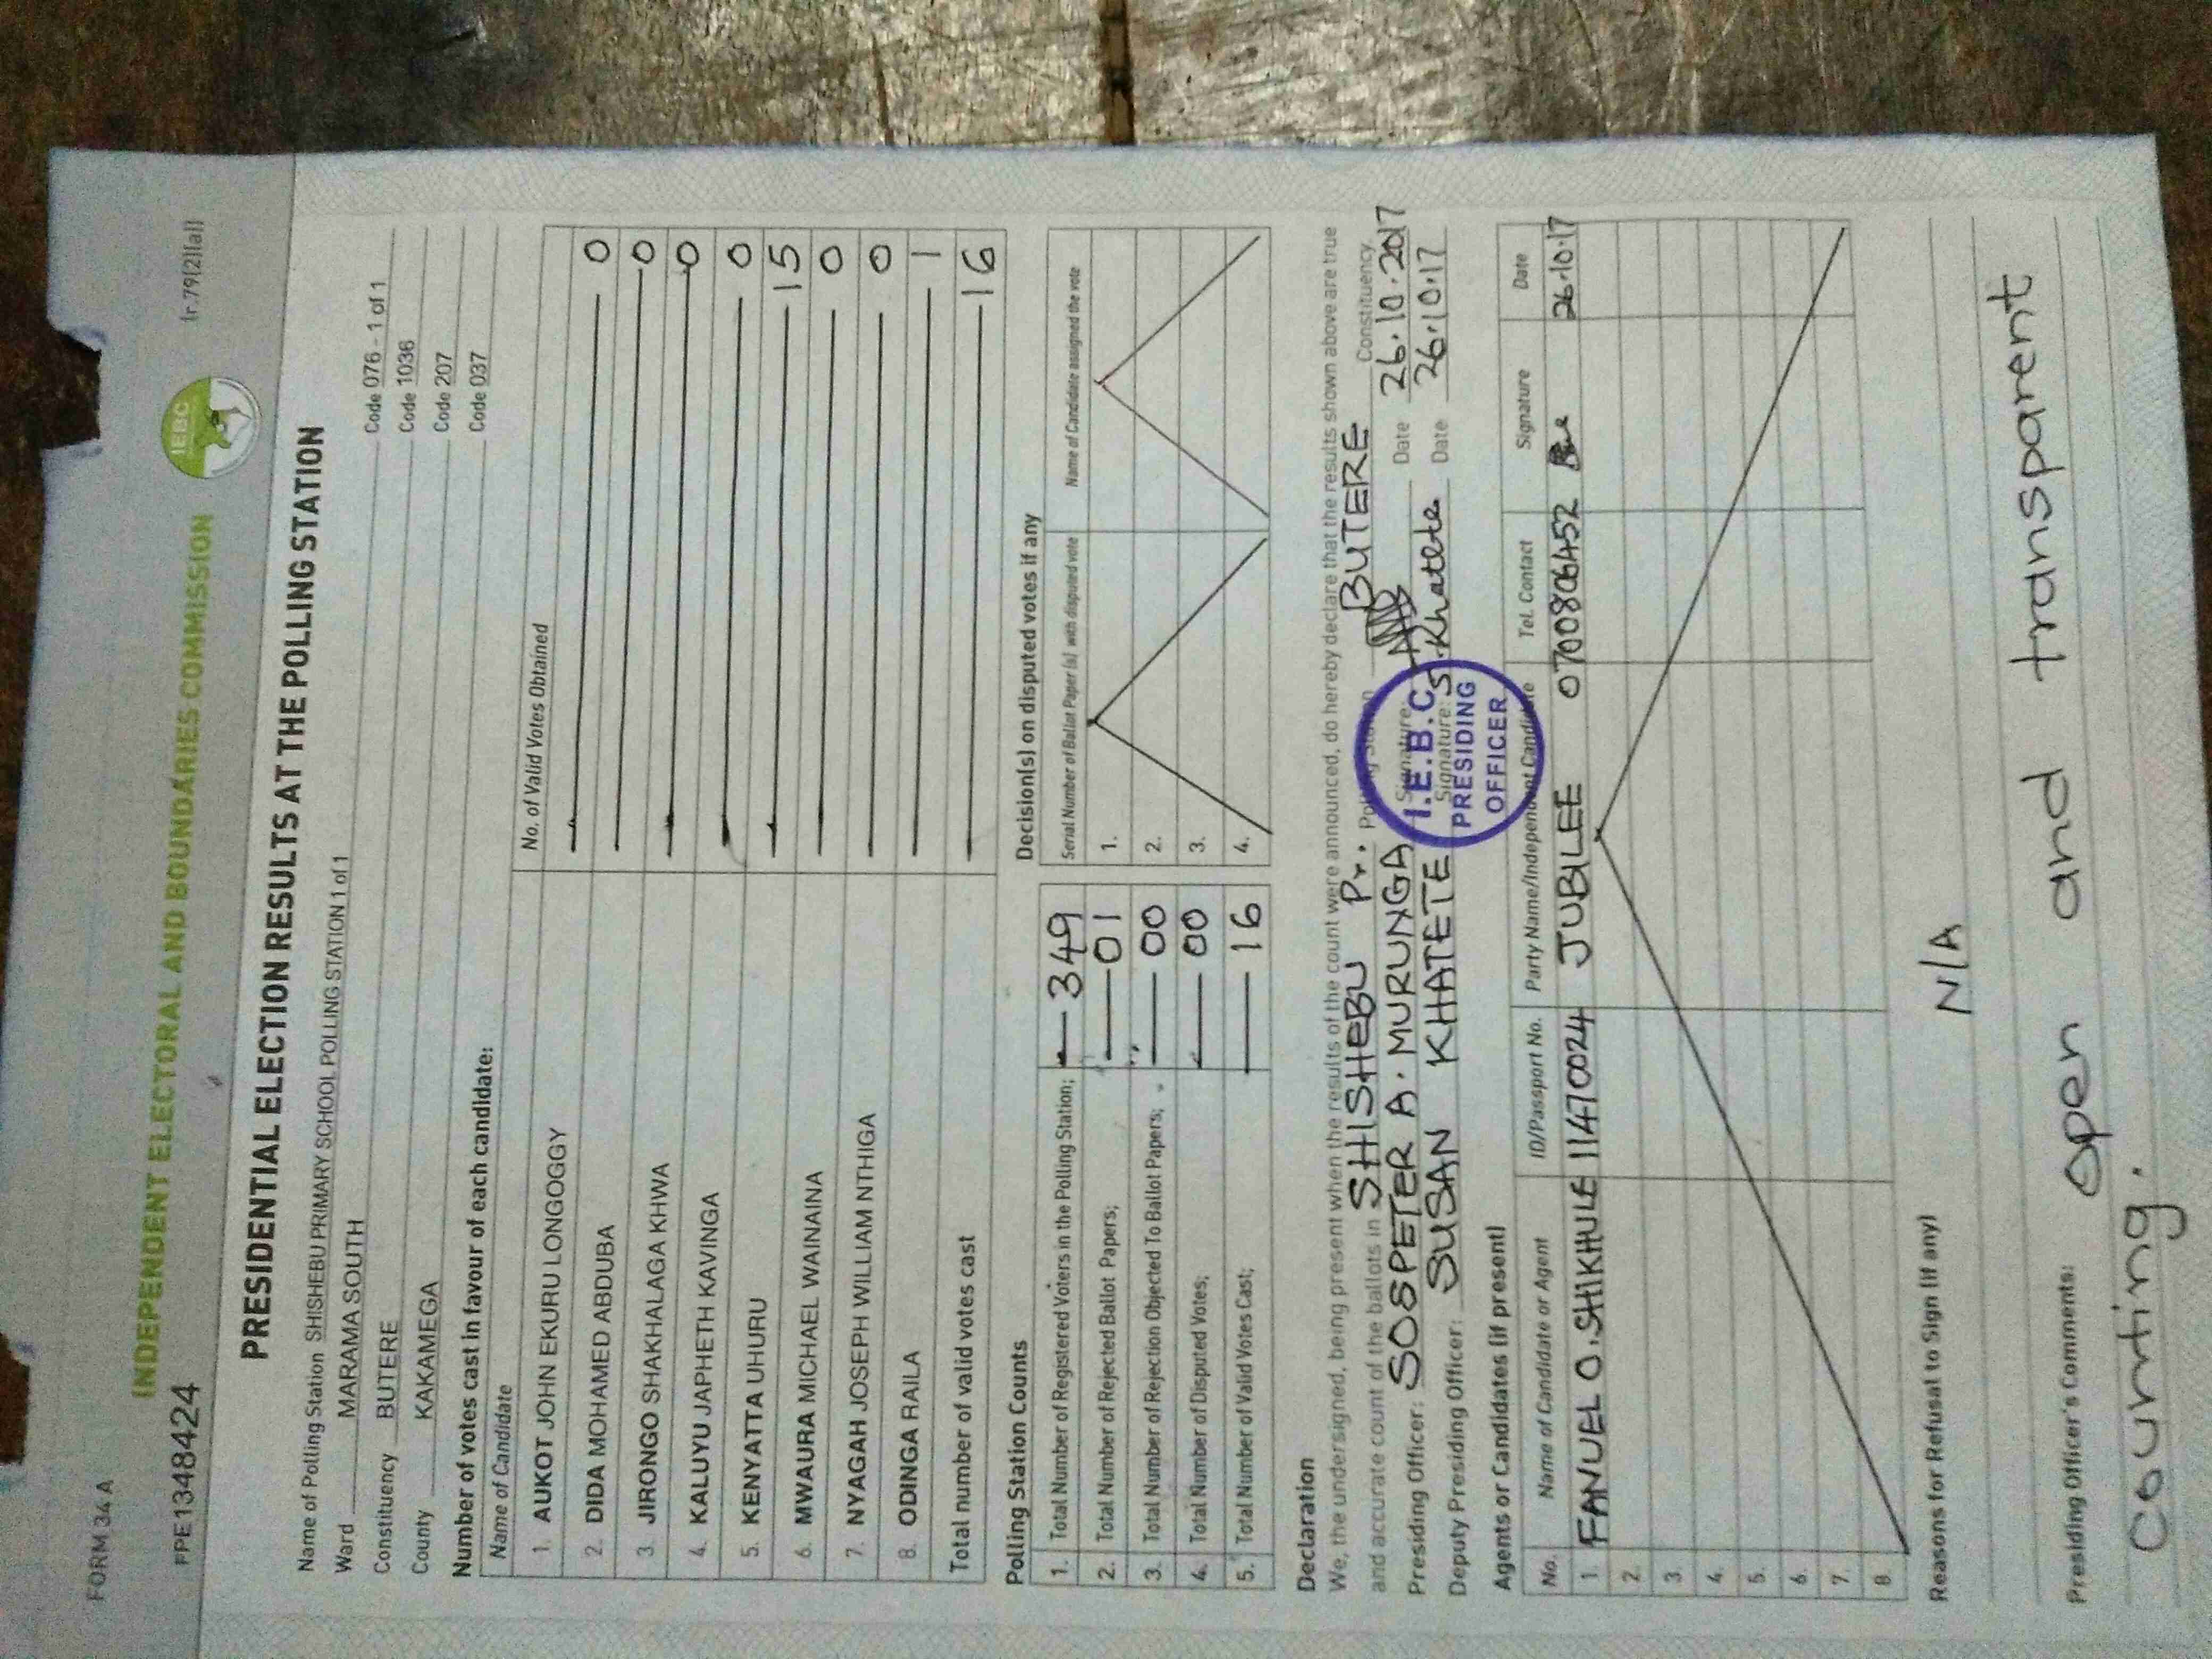 FORM 34 A
(r.79(2)(a))
IEBC
INDEPENDENT ELECTORAL AND BOUNDARIES COMMISSION
PPE13484424
PRESIDENTIAL ELECTION RESULTS AT THE POLLING STATION
Name of Polling Station SHISHEBU PRIMARY SCHOOL POLLING STATION 1 of 1 Code 076 - 1 of 1
Ward MARAMA SOUTH Code 1036
Constituency BUTERE Code 207
County KAKAMEGA Code 037
Number of votes cast in favour of each candidate:
Name of Candidate No. of Valid Votes Obtained
1. AUKOT JOHN EKURU LONGOGGY 0
2. DIDA MOHAMED ABDUBA 0
3. JIRONGO SHAKHALAGA KHWA 0
4. KALUYU JAPHETH KAVINGA 0
5. KENYATTA UHURU 15
6. MWAURA MICHAEL WAINAINA 0
7. NYAGAH JOSEPH WILLIAM NTHIGA 0
8. ODINGA RAILA 1
Total number of valid votes cast 16
Polling Station Counts
1. Total Number of Registered Voters in the Polling Station; 349
2. Total Number of Rejected Ballot Papers; 01
3. Total Number of Rejection Objected To Ballot Papers; 00
4. Total Number of Disputed Votes; 00
5. Total Number of Valid Votes Cast; 16
Decision(s) on disputed votes if any
Serial Number of Ballot Paper (s) with disputed vote Name of Candidate assigned the vote
1.
2.
3.
4.
Declaration
We, the undersigned, being present when the results of the count were announced, do hereby declare that the results shown above are true
and accurate count of the ballots in SHISHEBU Pr. Polling Station BUTERE Constituency
Presiding Officer: SOSPETER A. MURUNGA Signature: Date 26.10.2017
Deputy Presiding Officer: SUSAN KHATETE Signature: S.Khatete Date 26.10.17
I.E.B.C
PRESIDING
OFFICER
Agents or Candidates (if present)
No. Name of Candidate or Agent ID/Passport No. Party Name/Independent Candidate Tel. Contact Signature Date
1. FANUEL O.SHIKHULE 11470024 JUBILEE 0700806452 26.10.17
2.
3.
4.
5.
6.
7.
8
Reasons for Refusal to Sign (if any) N/A
Presiding Officer's Comments: open and transparent
counting.